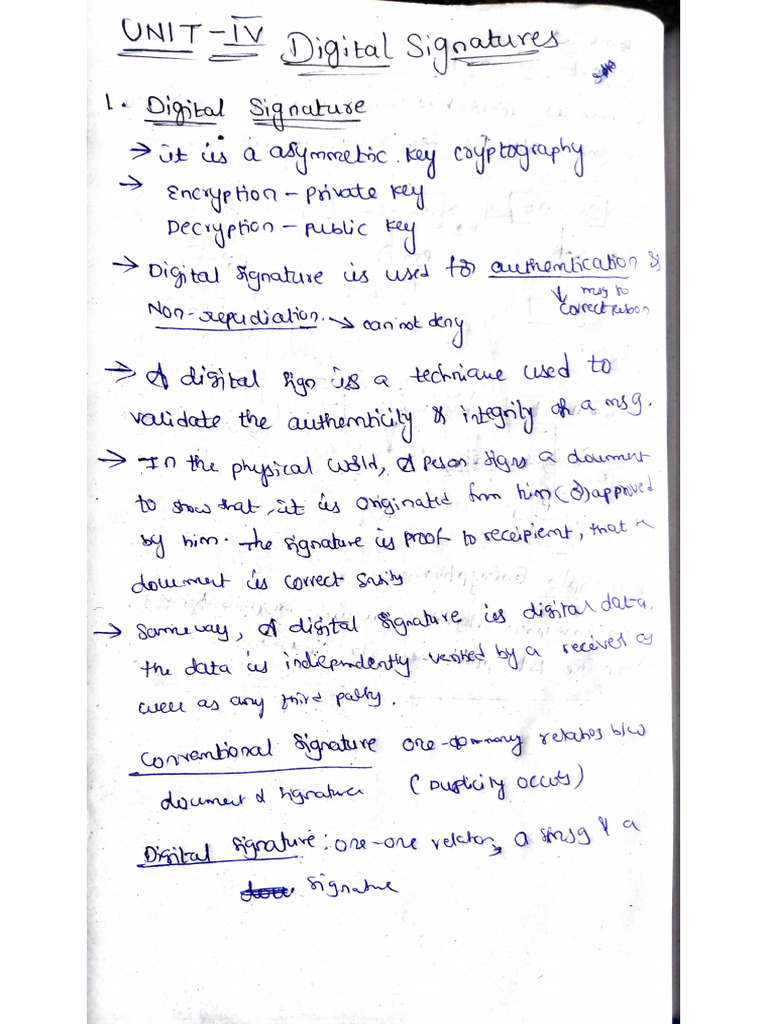 UNIT-IV Digital Signatures
1. Digital Signature
→ it is a asymmetric key cryptography
→ Encryption - private key
Decryption - public key
→ Digital signature is used for authentication &
↓ msg to
correct person
Non-repudiation → can not deny
→ A digital sign is a technique used to
validate the authenticity & integrity of a msg.
→ In the physical world, A person signs a document
to show that, it is originated from him (or) approved
by him. The signature is proof to receipient, that
document is correct
→ Same way, A digital signature is digital data.
the data is independently verified by a receiver as
well as any third party.
Conventional Signature one-to-many relation b/w
document & signatures (Duplicity occurs)
Digital Signature: one-one relation, a msg & a
signature